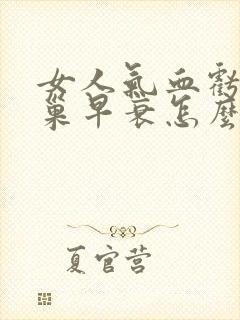 女人氣血虧
巢早衰怎麼
夏官营